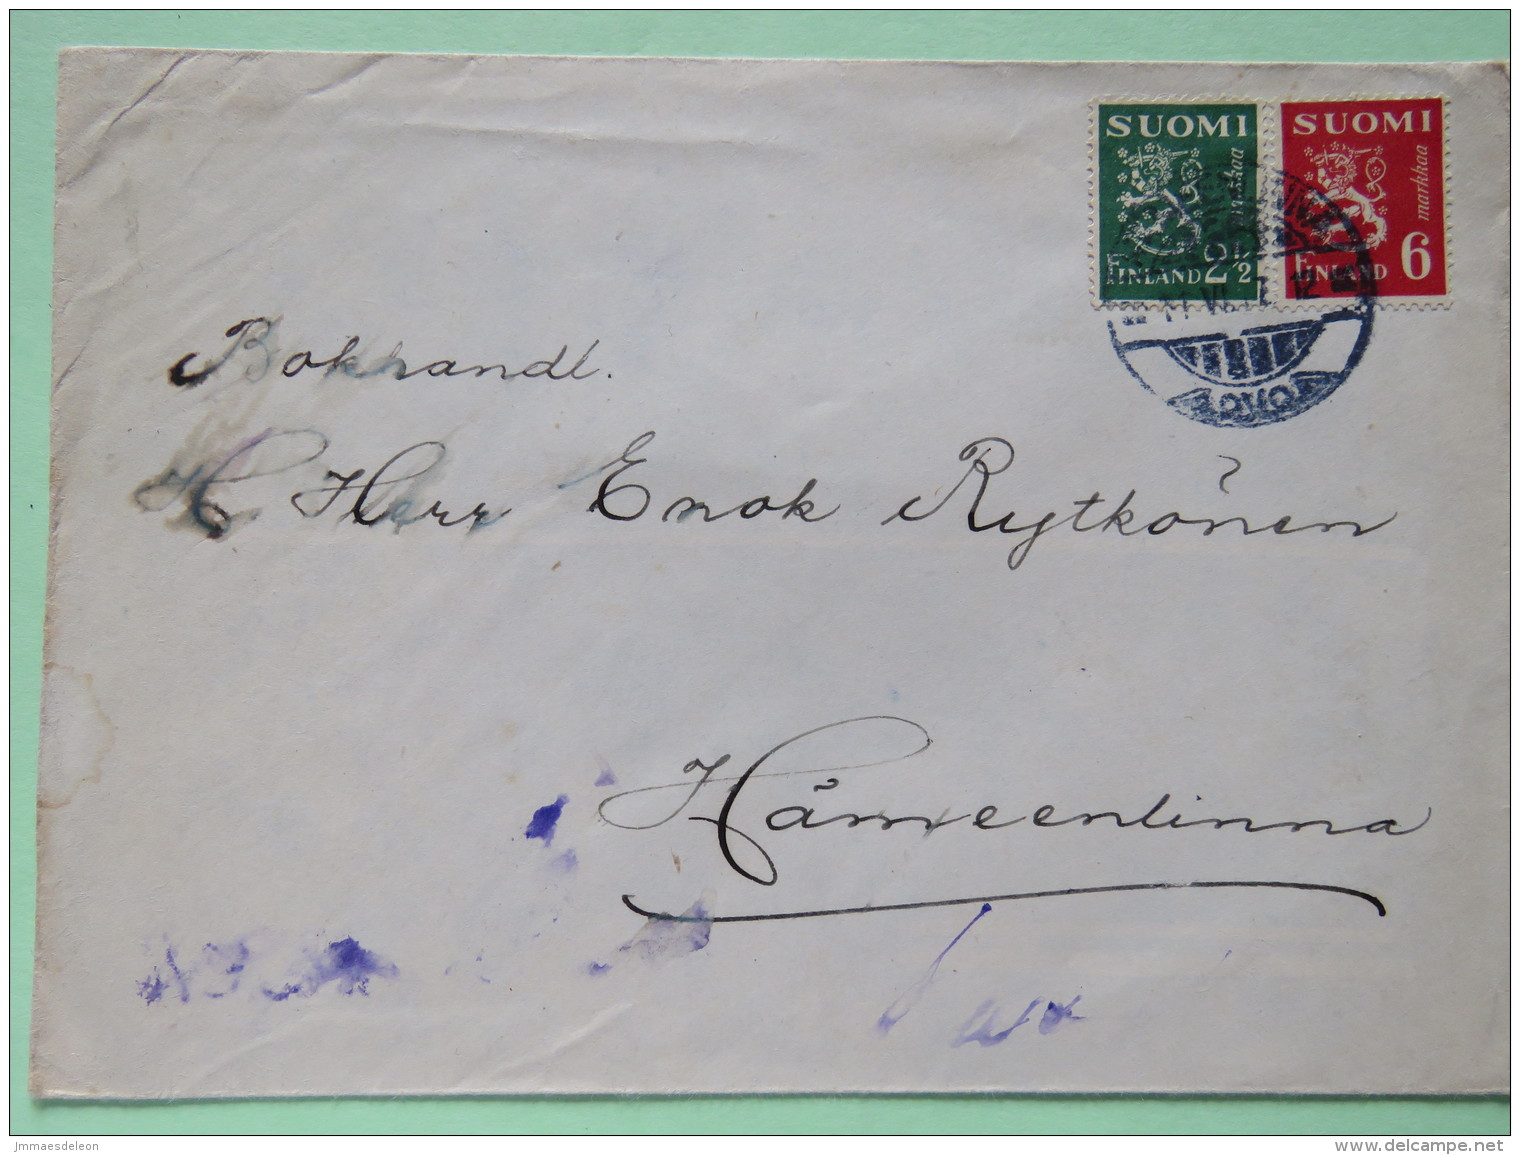 SUOMI
markkaa
FINLAND 2½
SUOMI
markkaa
FINLAND 6
Bokhandl.
H Herr Enok Rytkönen
Hämeenlinna
Jmmaesdeleon
delcampe.net